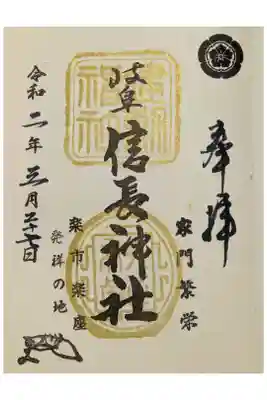 奉拝
家門繁栄
岐阜
信長神社
楽市楽座
発祥の地
令和二年三月二十七日